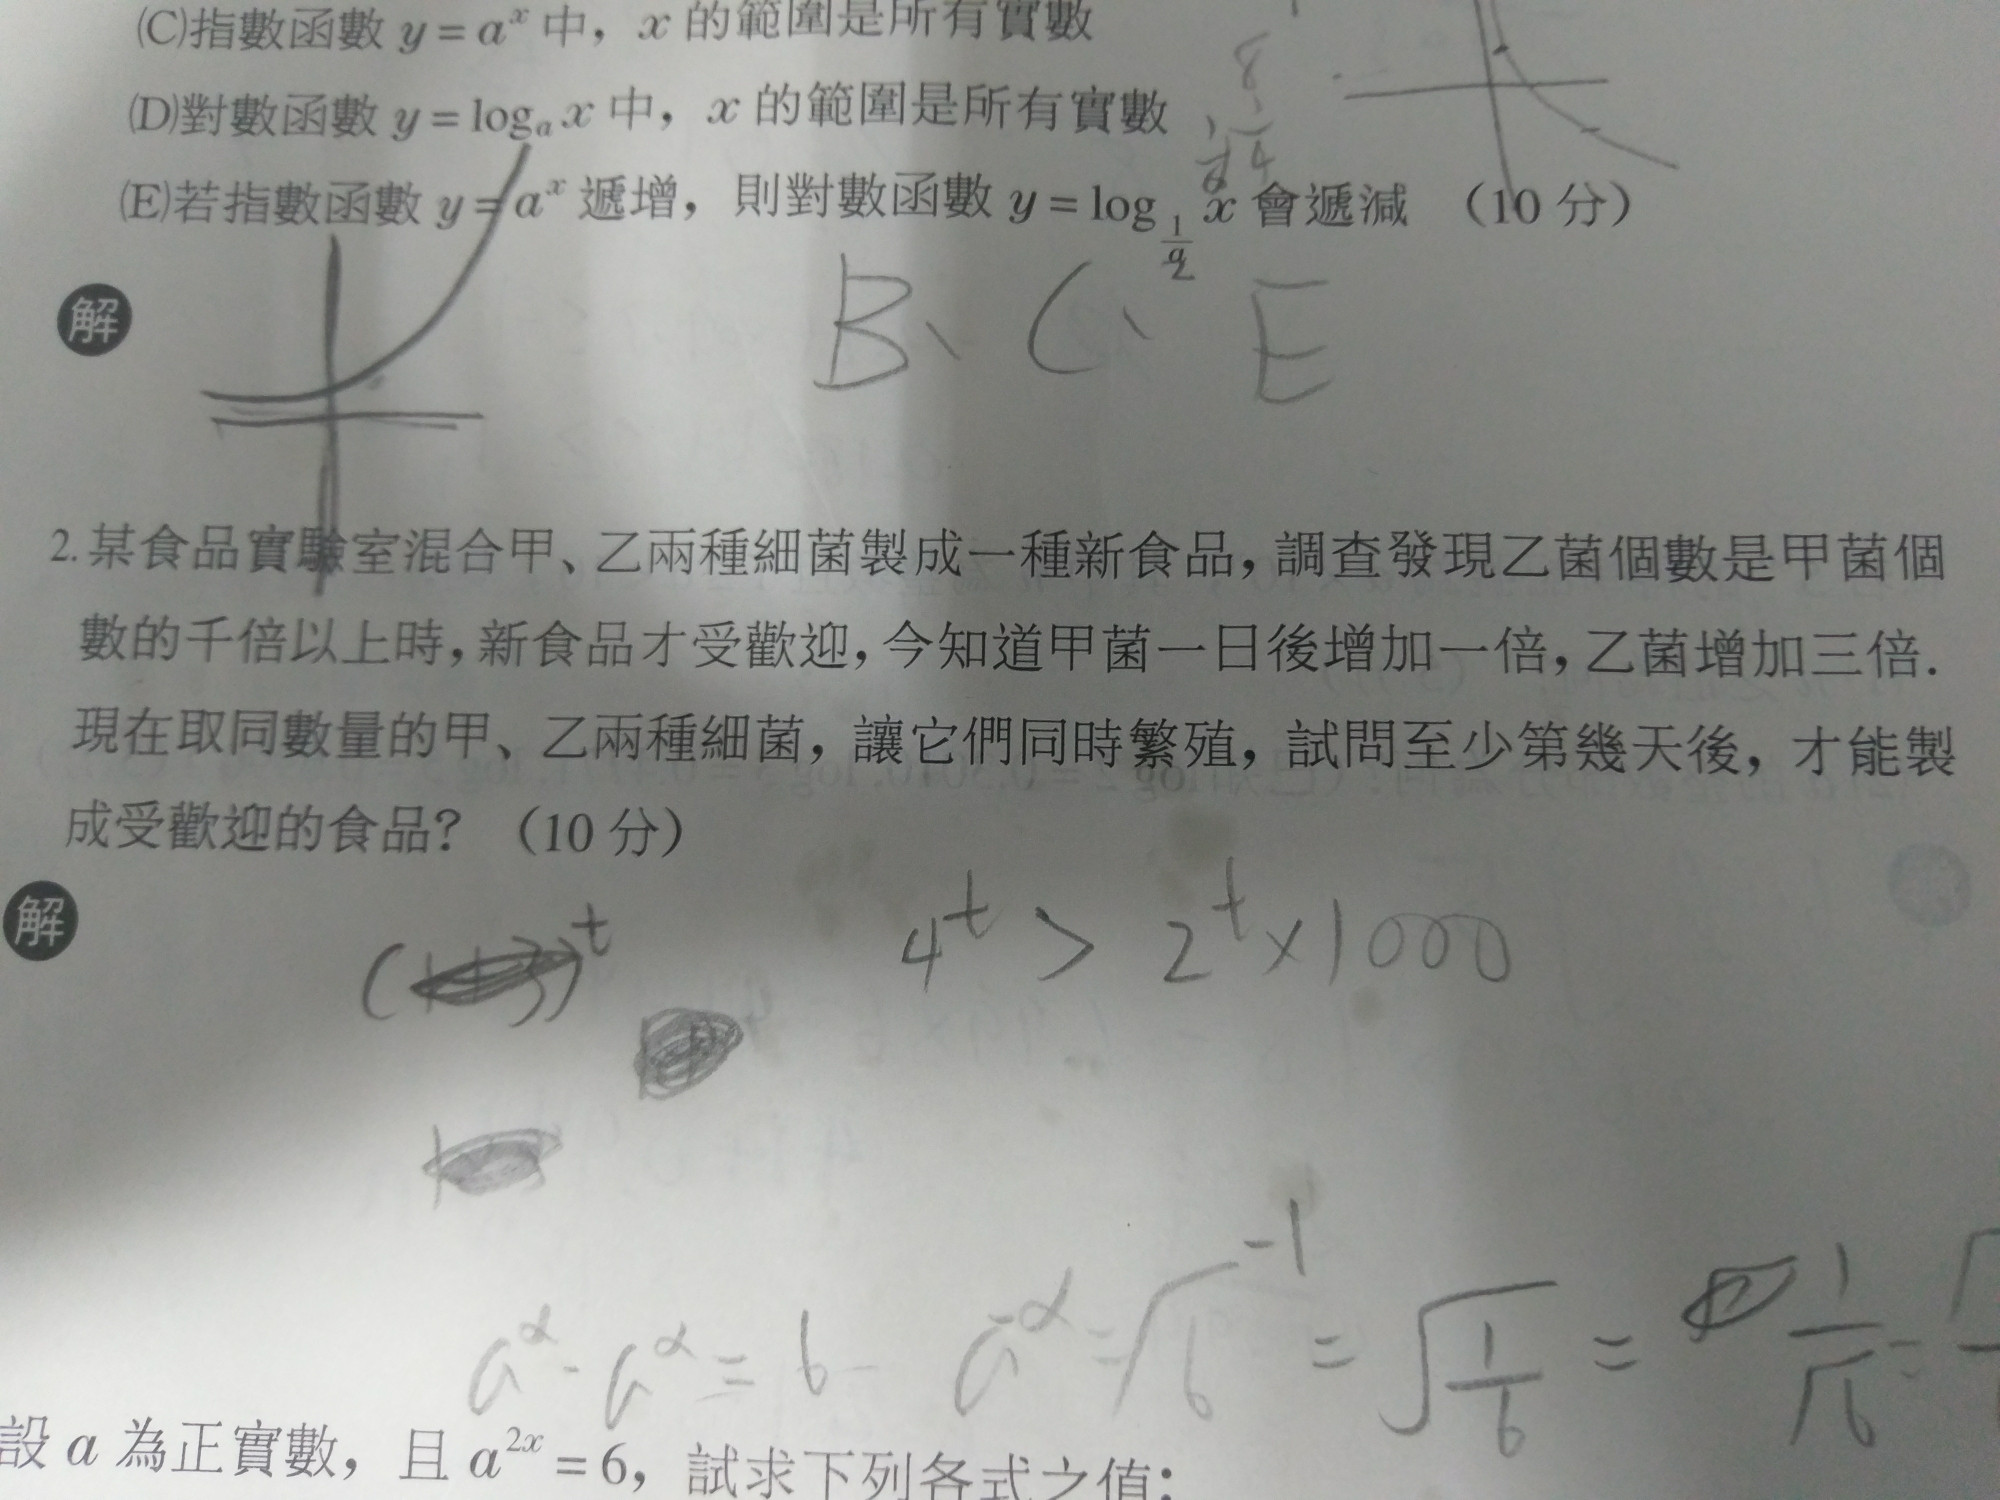 (C)指數函數 y = a^x 中，x 的範圍是所有實數
(D)對數函數 y = log_a x 中，x 的範圍是所有實數
8
1/4
(E)若指數函數 y = a^x 遞增，則對數函數 y = log_{1/a} x 會遞減 （10 分）
解
B、C、E
2. 某食品實驗室混合甲、乙兩種細菌製成一種新食品，調查發現乙菌個數是甲菌個
數的千倍以上時，新食品才受歡迎，今知道甲菌一日後增加一倍，乙菌增加三倍．
現在取同數量的甲、乙兩種細菌，讓它們同時繁殖，試問至少第幾天後，才能製
成受歡迎的食品？（10 分）
解
4^t > 2^t × 1000
a^α · a^α = 6 a^{-α} = √6^{-1} = √(1/6) = 1/√6 =
設 a 為正實數，且 a^{2x} = 6，試求下列各式之值：